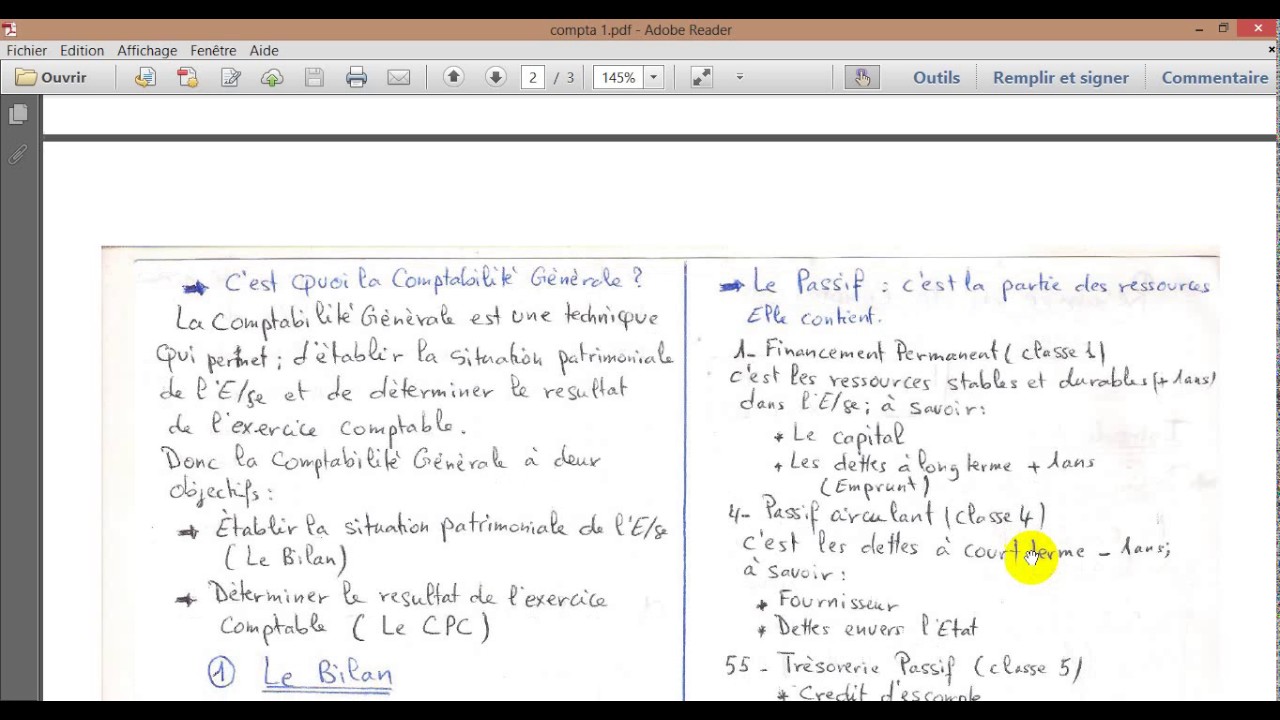 compta 1.pdf - Adobe Reader
Fichier Edition Affichage Fenêtre Aide
Ouvrir 2 / 3 145% Outils Remplir et signer Commentaire
C'est Quoi la Comptabilité Générale ?
La Comptabilité Générale est une technique
Qui permet ; d'établir la situation patrimoniale
de l'E/se et de déterminer le resultat
de l'exercice comptable.
Donc la Comptabilité Générale à deux
objectifs :
Établir la situation patrimoniale de l'E/se
( Le Bilan)
Déterminer le resultat de l'exercice
Comptable ( Le CPC )
1 Le Bilan
Le Passif : c'est la partie des ressources
Elle contient.
1- Financement Permanent ( classe 1)
c'est les ressources stables et durables (+ 1ans)
dans l'E/se ; à savoir :
* Le capital
* Les dettes à long terme + 1ans
( Emprunt )
4- Passif circulant ( Classe 4 )
c'est les dettes à court terme - 1ans ;
à savoir :
* Fournisseur
* Dettes envers l'Etat
55 - Trèsorerie Passif ( classe 5)
* Credit d'escompte